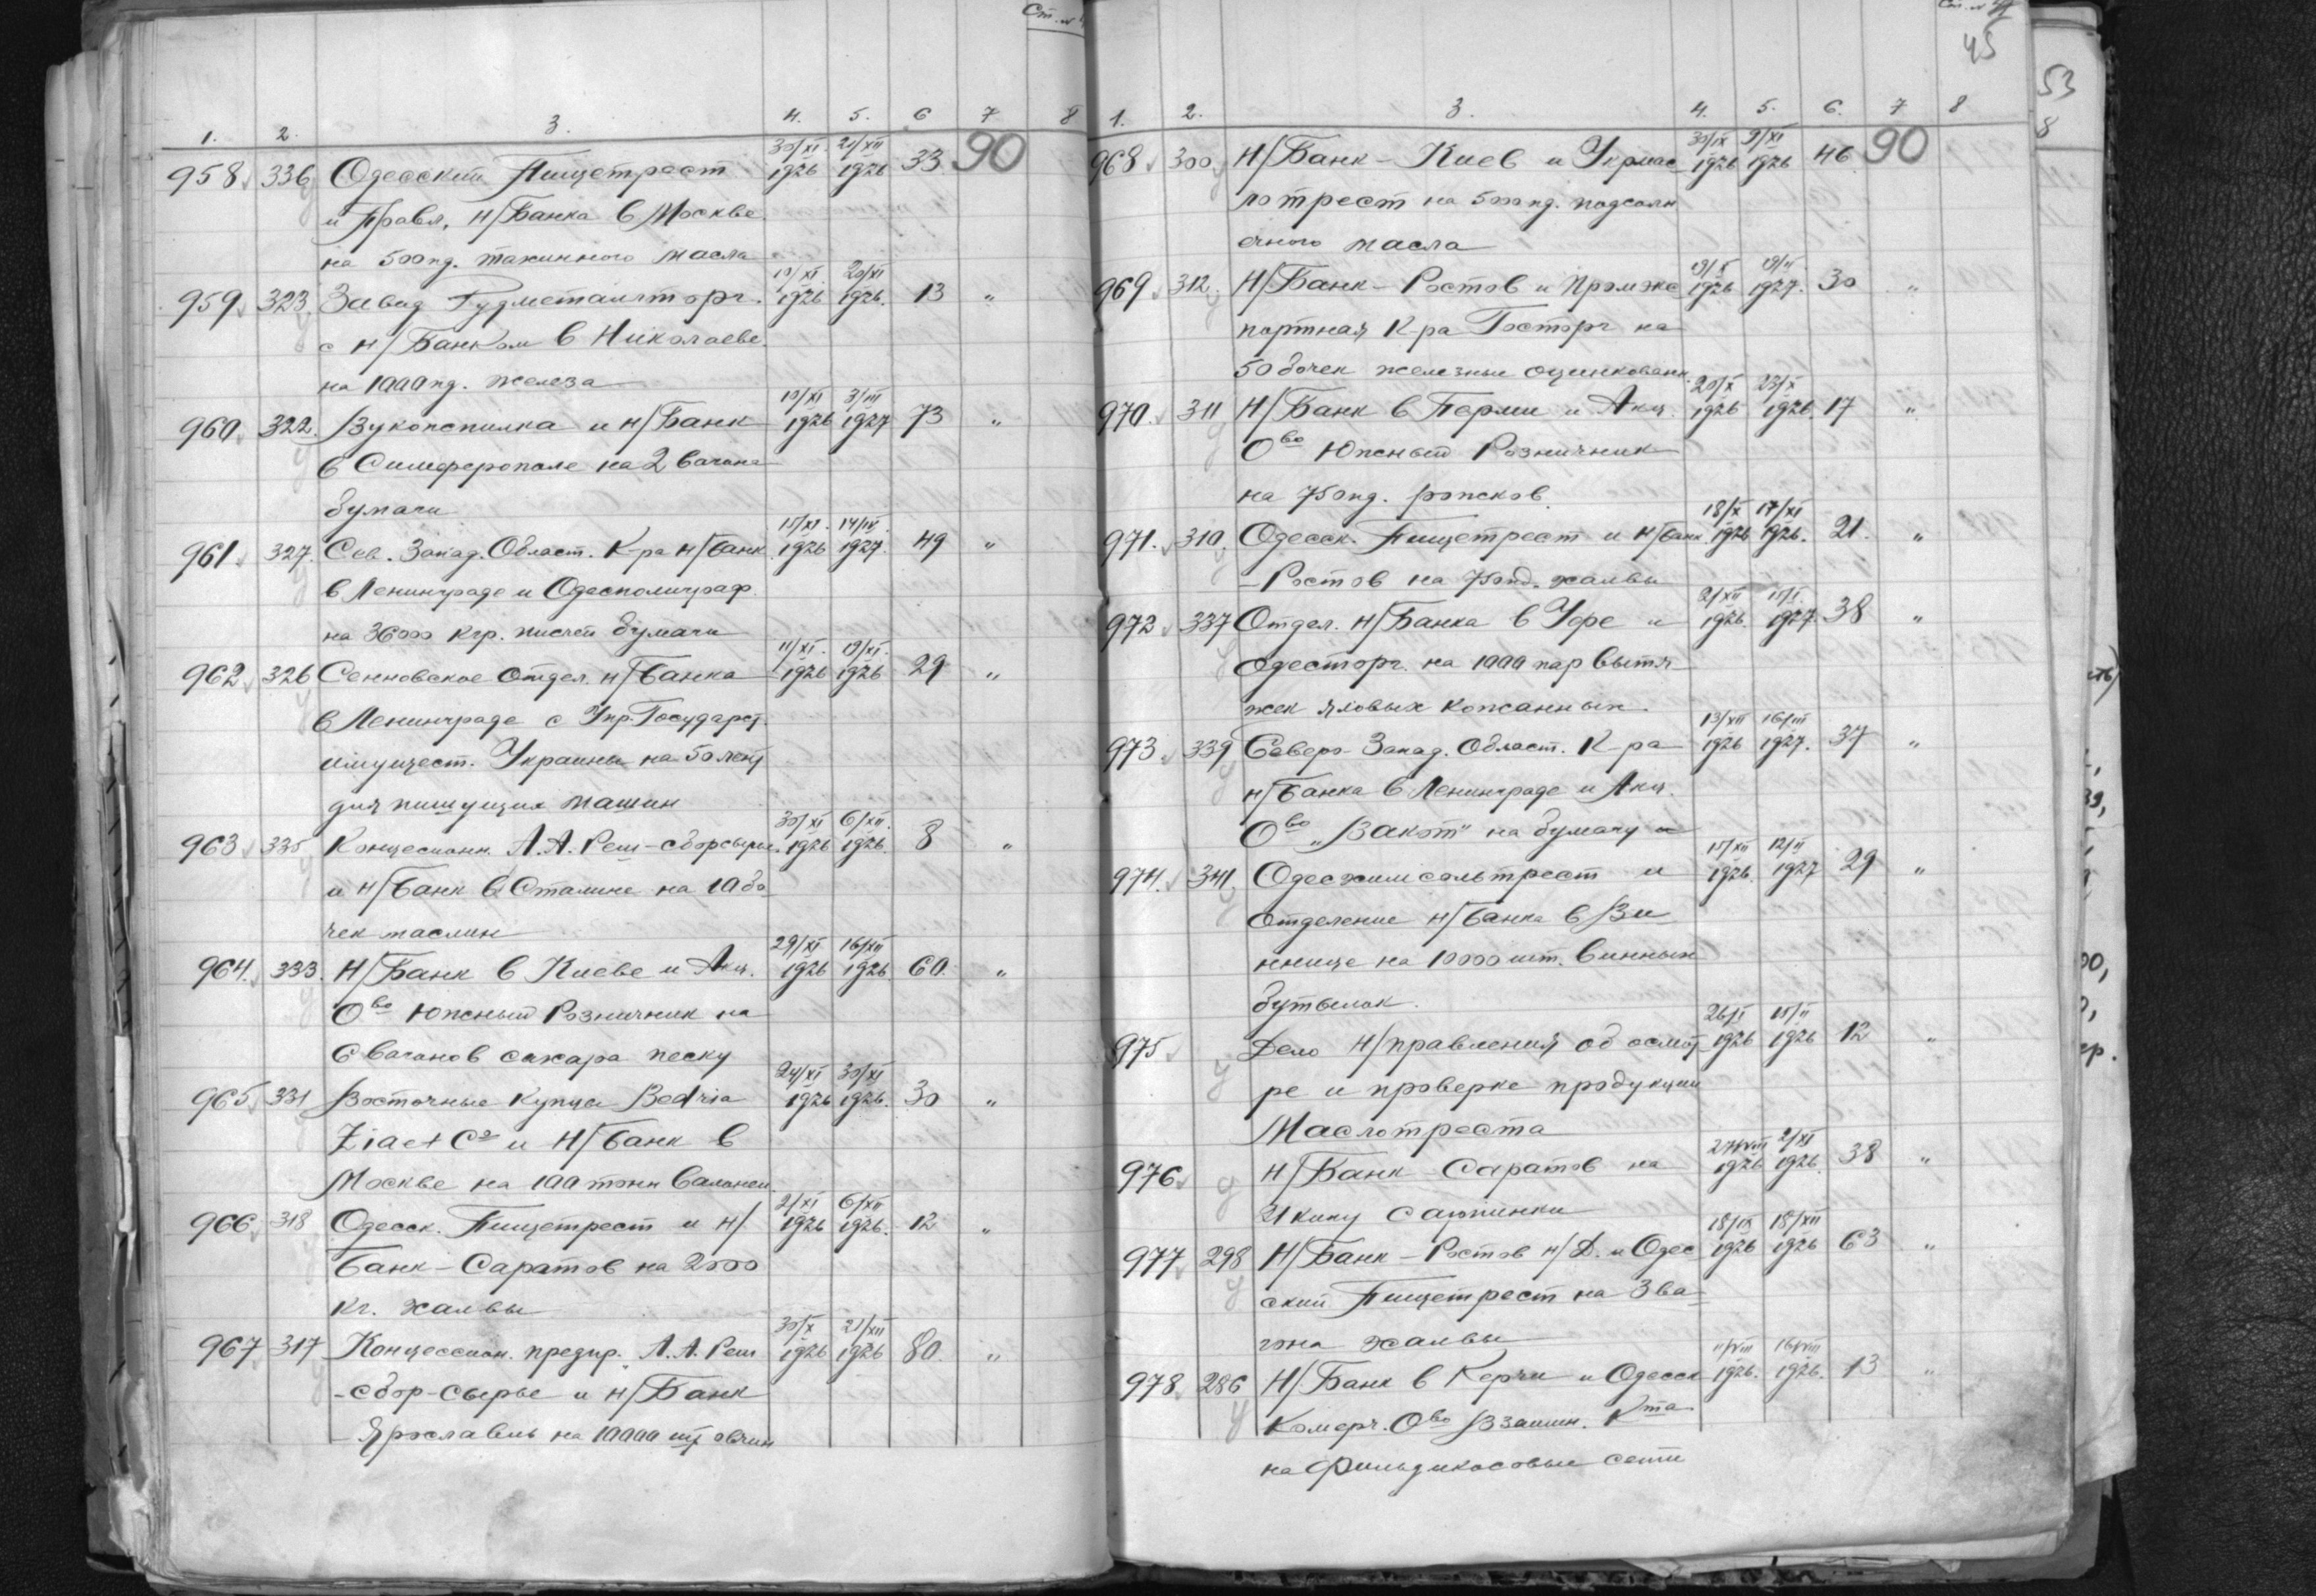 Ст. №
1. 2. 3. 4. 5. 6 7 8
958 336 Одесский Пищетрест 30/XI 1926 21/XII 1926 33 90
и Правл. Н/Банка в Москве
на 500 пд. тахинного масла
959 323 Завод Гудметалторг. 10/XI 1926 20/XI 1926. 13 "
с Н/Банком в Николаеве.
на 1000 пд. железа
960. 322. Вукопспилка и Н/Банк 10/XI 1926 3/III 1927 73 "
в Симферополе на 2 вагона
бумаги
961. 327. Сев. Запад. Област. К-ра Н/Банк 15/XI. 1926 14/III. 1927. 49 "
в Ленинграде и Одесполиграф.
на 36000 кгр. писчей бумаги
962 326 Сенновское Отдел. Н/Банка 11/XI. 1926 19/XI. 1926 29 "
в Ленинграде с Упр. Государст.
имущест. Украины на 50 лент
для пишущих машин
963 335 Концессионн. А. А. Реш-сборсырье. 30/XI 1926 6/XII. 1926. 8 "
и Н/Банк в Сталине на 10 бо
чек маслин
964. 333. Н/Банк в Киеве и Акц. 29/XI 1926 16/XII 1926 60. "
Ово Южный Розничник на
6 вагонов сахара песку
965 331 Восточные Купцы Bedria 24/XI 1926 30/XI 1926. 30 "
Ziaet Co и Н/Банк в
Москве на 100 тонн валонеи.
966 318 Одесск. Пищетрест и Н/ 2/XI 1926 6/XII 1926. 12 "
Банк-Саратов на 2000
кг. халвы
967 317 Концессион. предпр. А. А. Реш 30/X 1926 21/XII 1926 80. "
-сбор-сырье и Н/Банк
Ярославль на 10000 шт овчин
Ст. №
45
53
8
1. 2. 3. 4. 5. 6. 7 8
968 300 Н/Банк-Киев и Укрмас 30/IX 1926 9/XI 1926 46 90
лотрест на 5000 пд. подсолн
ечного масла
969 312. Н/Банк-Ростов и Промэкс 1926 1927. 30 "
портная К-ра Госторг на
50 бочек железных оцинкованн.
970. 311 Н/Банк в Перми и Акц. 20/X 1926 23/X 1926. 17 "
Ово Южный Розничник
на 750 пд. рожков.
971. 310. Одесск. Пищетрест и Н/Банк 18/X 1926 17/XI 1926. 21. "
-Ростов на 750 пд. халвы
972 337 Отдел. Н/Банка в Уфе и 2/XII 1926. 1927. 38 "
Одесторг. на 1000 пар вытя
жек яловых кожанных.
973 339 Северо-Запад. Област. К-ра 13/XII 1926 16/III 1927. 37 "
Н/Банка в Ленинграде и Акц.
Ово "Вакот" на бумагу
974. 341. Одесхимсольтрест и 15/XII 1926. 1927 29 "
Отделение Н/Банка в Ви
ннице на 10000 шт. винных
бутылок.
975 Дело Н/правления об осмот 1926 1926 12 "
ре и проверке продукции
Маслотреста
976. Н/Банк Саратов на 27/VIII 1926 2/XI 1926. 38 "
21 кипу сарпинки
977 298 Н/Банк-Ростов н/Д. и Одес 18/IX 1926 18/XII 1926 63 "
ский Пищетрест на 3 ва
гона халвы
978 286 Н/Банк в Керчи и Одесск 11/VIII 1926. 16/VIII 1926. 13 "
Комерч. Ово Взаимн. Кта
на Фильдикосовые сети